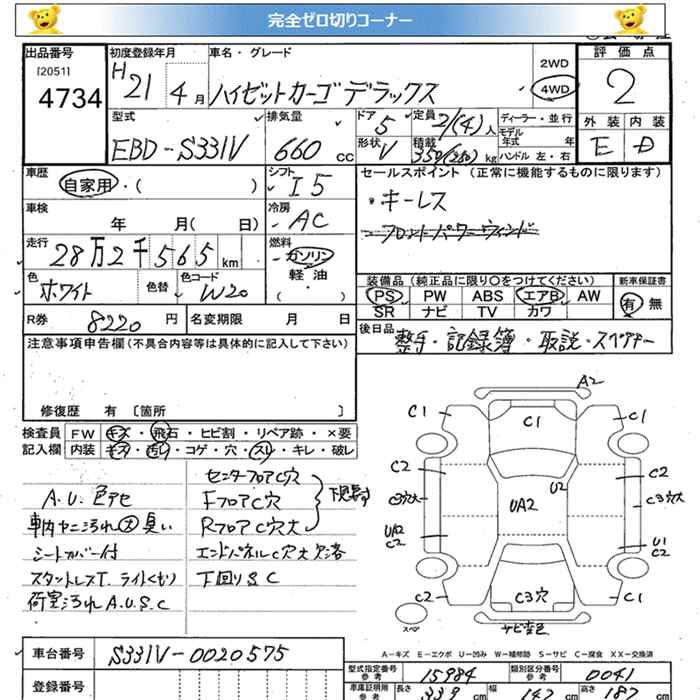 完全ゼロ切りコーナー
出品番号
[2051]
4734
初度登録年月
H21 4月
車名・グレード
ハイゼットカーゴデラックス
2WD
4WD
評価点
2
外装 内装
E D
型式
EBD-S331V
排気量
660 cc
ドア
5
形状
V
定員
2/(4)人
積載
350(250)kg
ディーラー・並行
モデル年式 年
ハンドル 左・右
車歴
自家用・( )
シフト
I5
車検
年 月( 日)
冷房
AC
走行
28万2千565 km
燃料
ガソリン
軽油
( )
色
ホワイト
色替
色コード
W20
R券
8220円
名変期限 月 日
セールスポイント (正常に機能するものに限ります)
・キーレス
フロントパワーウィンドー
装備品(純正品に限り○をつけてください)
PS PW ABS エアB AW
SR ナビ TV カワ
新車保証書
有 無
後日品
整手・記録簿・取説・スペアキー
注意事項申告欄(不具合内容等は具体的に記入して下さい)
修復歴 有 [箇所 ]
検査員記入欄
FW キズ・飛石・ヒビ割・リペア跡・×要
内装 キズ・汚レ・コゲ・穴・スレ・キレ・破レ
A.U.色アセ
車内ヤニ汚れ大臭い
シートカバー付
スタットレスT.ライトくもり
荷室汚れA.U.S.C
センターフロアC穴
FフロアC穴
RフロアC穴大
エンドパネルC穴大欠落
下回りS C
A2
C1
C1
C1
C2
C2
U2
C3穴大
UA2
C3穴大
UA2
C2
U1
C2
C2
C3穴
C1
スペア
サビ変色
A-キズ E-エクボ U-凹み W-補修跡 S-サビ C-腐食 XX-交換済
車台番号
S331V-0020575
登録番号
型式指定番号
参考
15984
類別区分番号
参考
0041
車庫証明用
参考
長さ 339 cm
幅 147 cm
高さ 187 cm